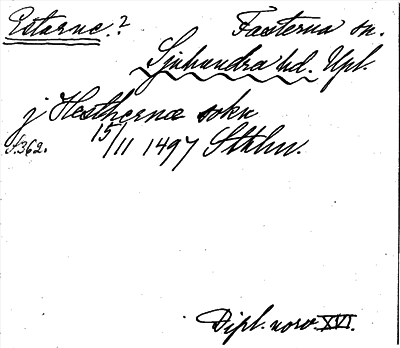 Estarne.? Fasterna sn.
Sjuhundra hd. Upl.
j Hesthernæ sokn
S. 362. 15/11 1497 Sthlm.
Dipl. norv. XVI.